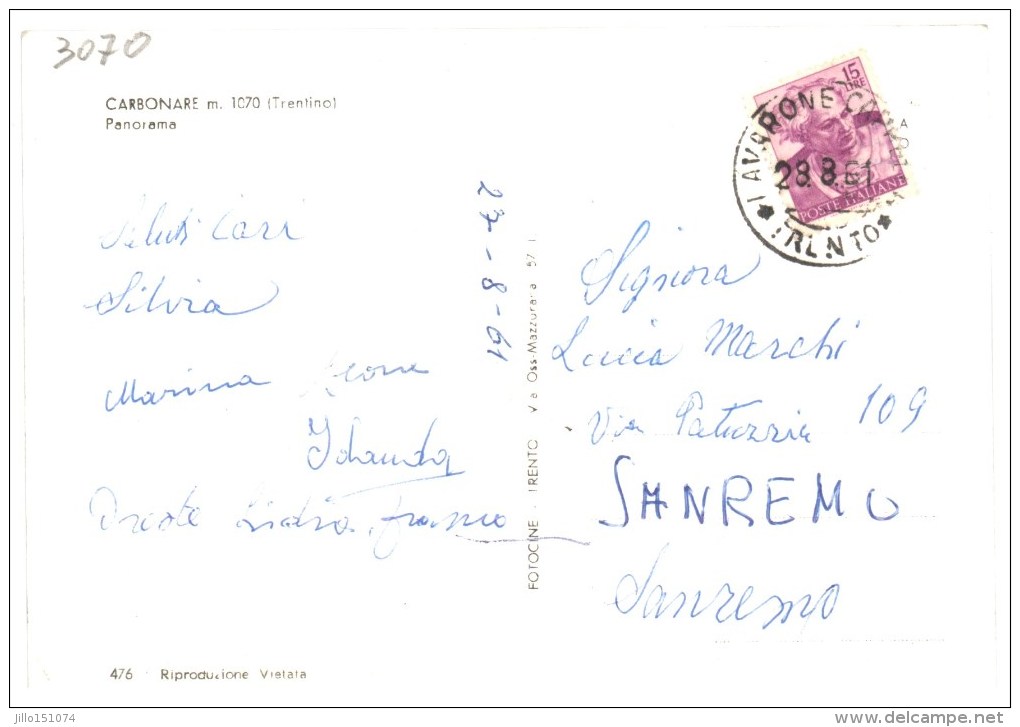 3070
CARBONARE m. 1070 (Trentino)
Panorama
15
LIRE
POSTE ITALIANE
LAVARONE
28.8.61
TRENTO
Saluti Cari
Silvia
Marina Leone
Iolanda
Oreste Lidia, Franco
27-8-61
FOTOCINE - TRENTO Via Oss-Mazzurana 57
Signora
Lucia Marchi
Via 109
SANREMO
Sanremo
476 Riproduzione Vietata
jillo151074
www.delcampe.net